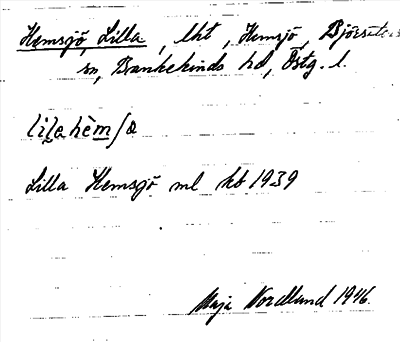 Hemsjö, Lilla, lht, Hemsjö, Björsäters
sn, Bankekinds hd, Östg. l.
lilahèmʃø
Lilla Hemsjö ml kb 1939
Maja Nordlund 1946.